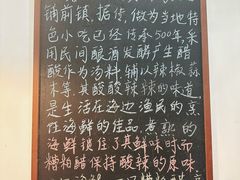 铺前镇，据传，做为当地特
色小吃已经传承500年，采
用民间酿酒发酵产生醋
酸作为汤料，辅以辣椒，蒜
术等，其酸酸辣辣的味道
是生活在海边渔民的烹
饪海鲜的佳品，煮熟的
海鲜被住了其鲜味时而
糟粕醋保持酸辣的原味